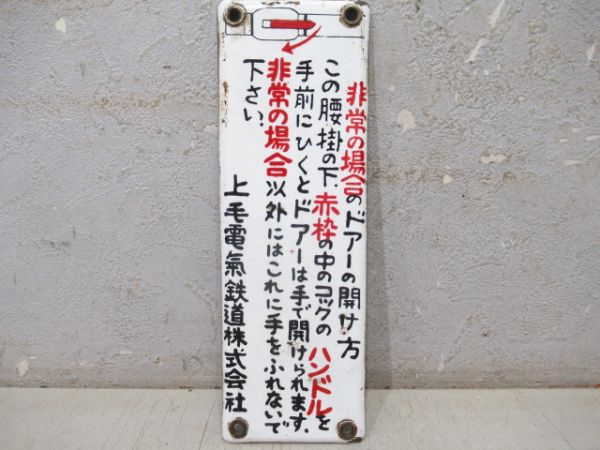 非常の場合のドアーの開け方
この腰掛の下、赤枠の中のコックのハンドルを
手前にひくとドアーは手で開けられます、
非常の場合以外にはこれに手をふれないで
下さい、
上毛電氣鉄道株式会社